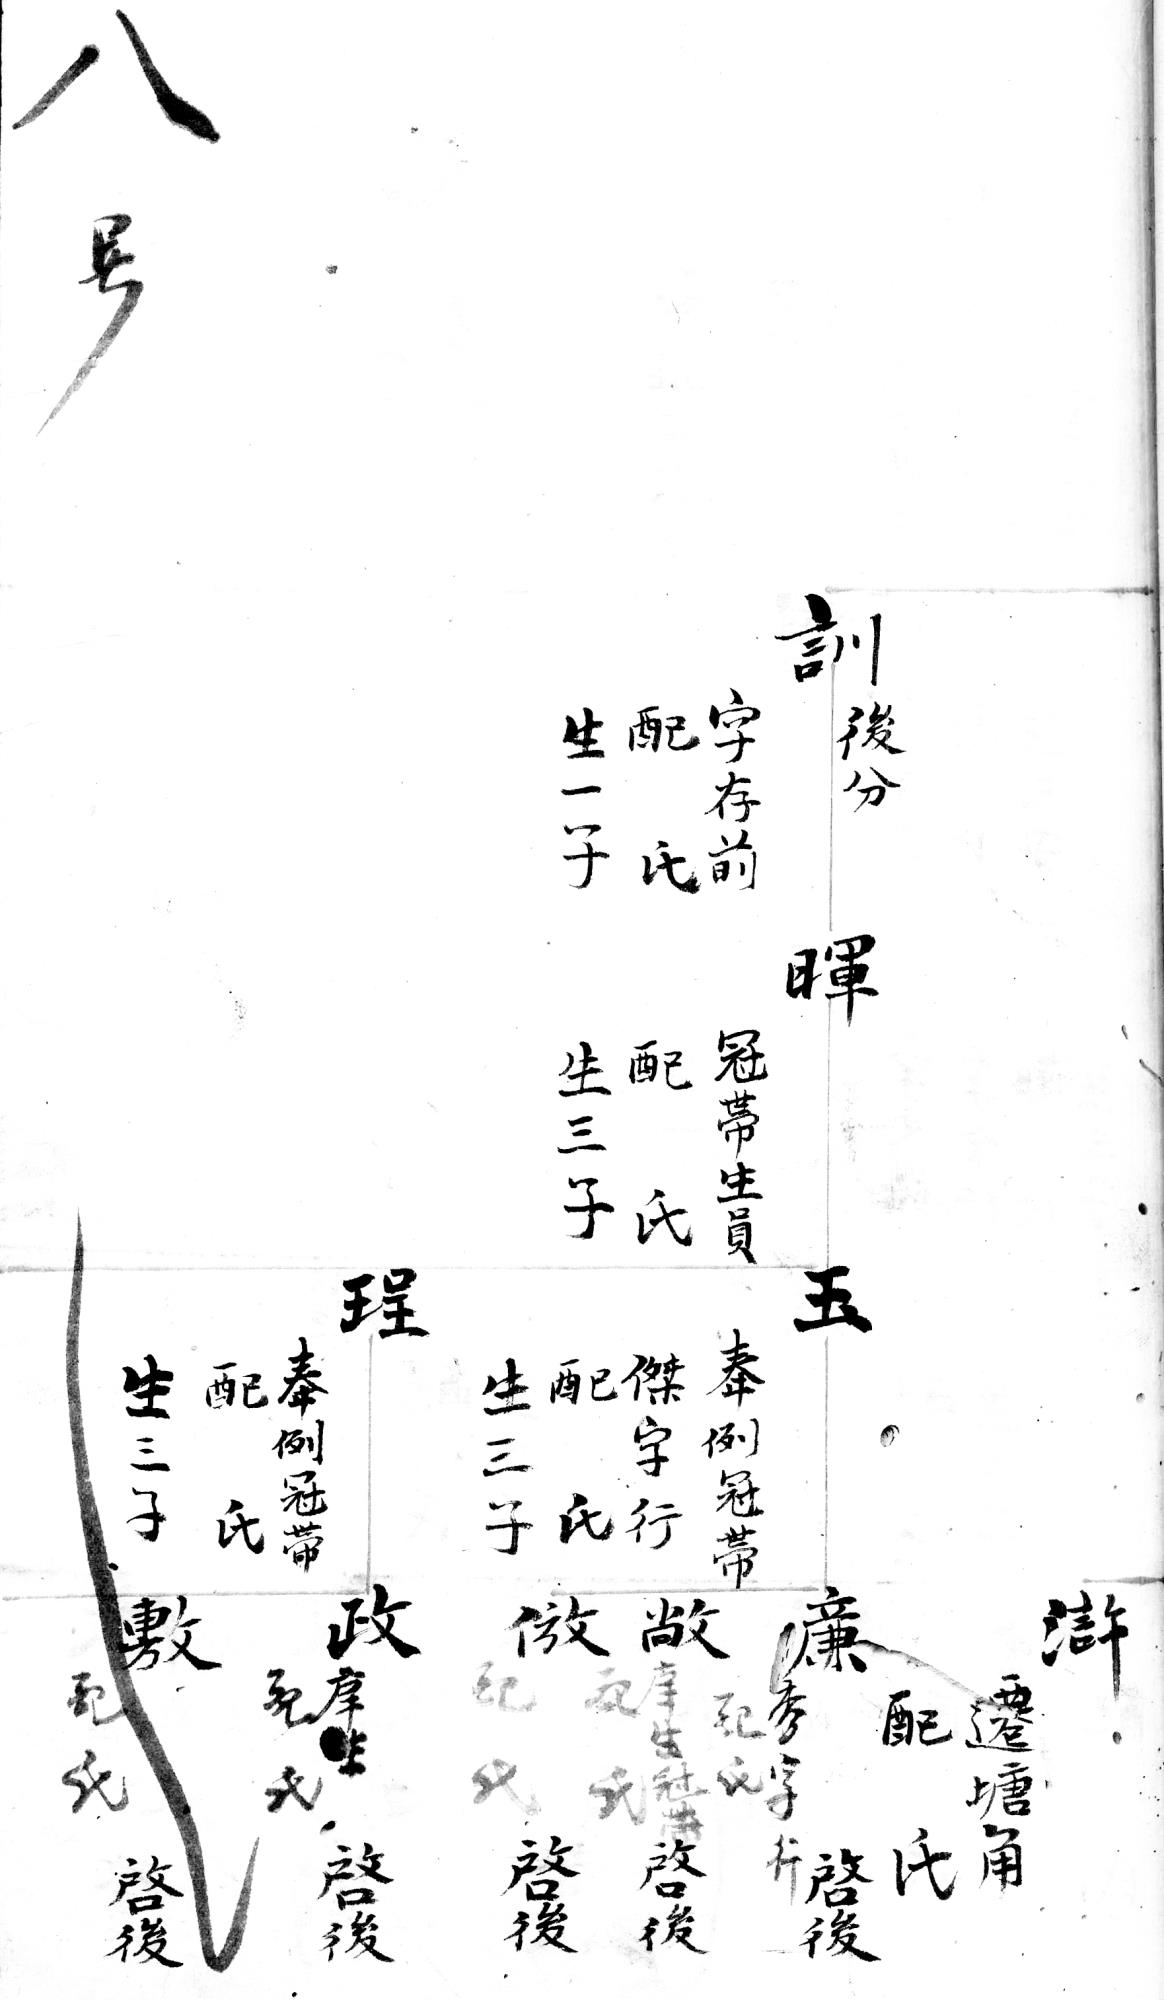 訓
後分
字存前
配 氏
生一子
暉
冠帶生員
配 氏
生三子
玉
奉例冠帶
傑字行
配 氏
生三子
珵
奉例冠帶
配 氏
生三子
滸
遷塘角
配 氏
廉
秀字行
配氏
啓後
敞
庠生冠帶
配氏
啓後
倣
配氏
啓後
政
庠生
配氏
啓後
敷
配氏
啓後
八号